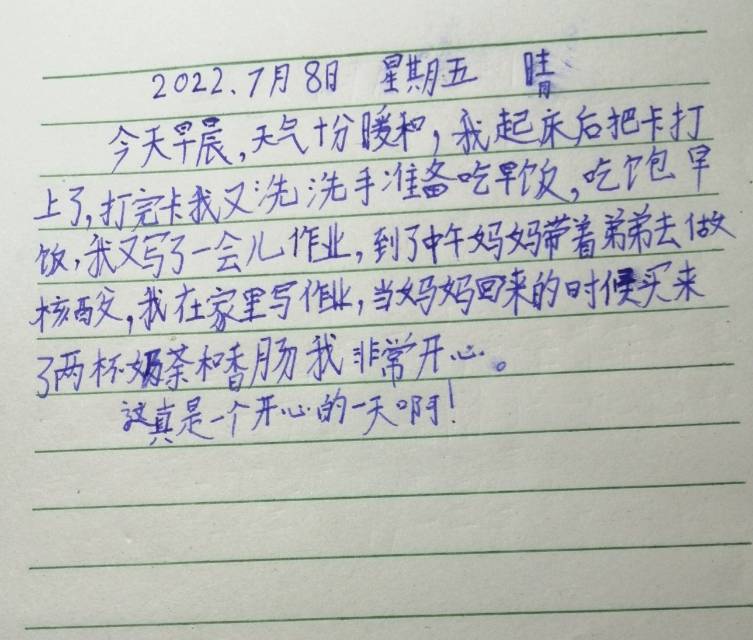 2022.7月8日 星期五 晴
今天早晨,天气十分暖和,我起床后把卡打
上了,打完卡我又洗洗手准备吃早饭,吃饱早
饭,我又写了一会儿作业,到了中午妈妈带着弟弟去做
核酸,我在家里写作业,当妈妈回来的时候买来
了两杯奶茶和香肠我非常开心。
这真是一个开心的一天啊!